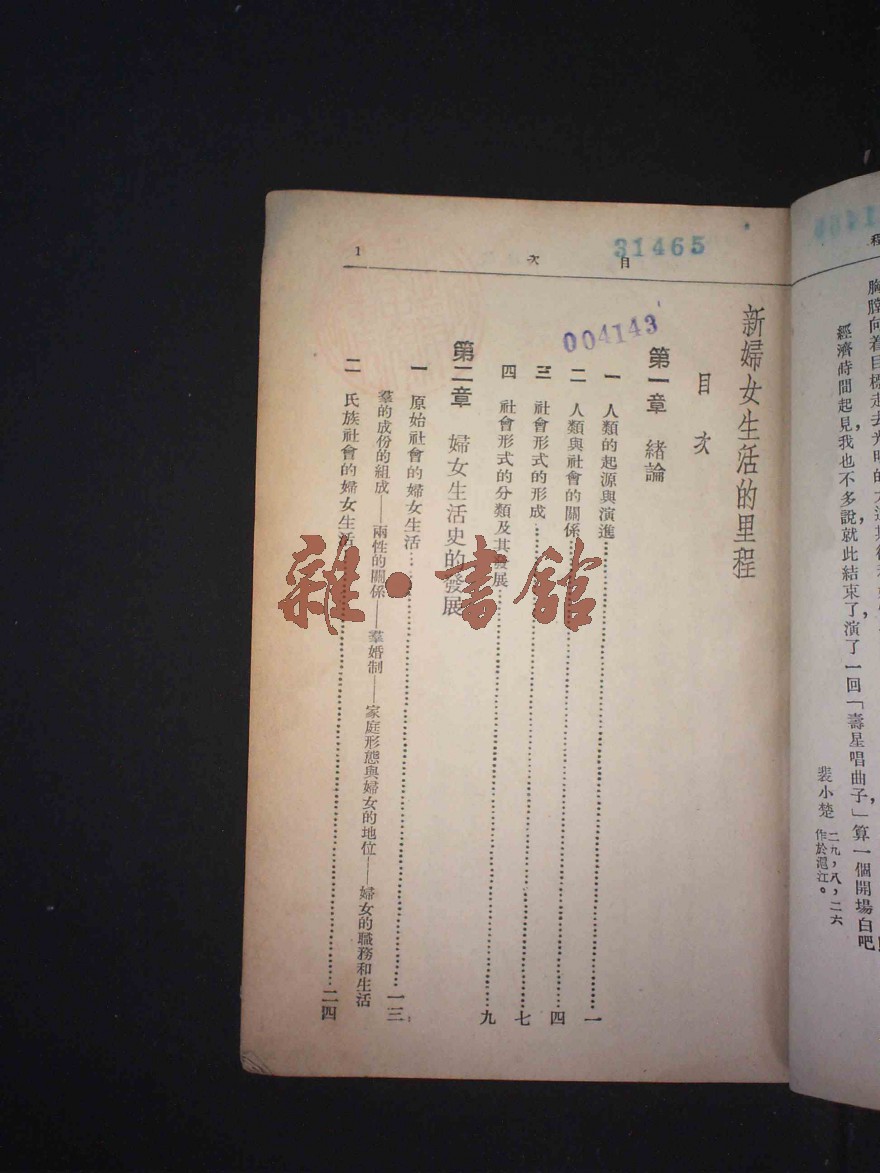 經濟時間起見，我也不多說，就此結束了，演了一回「壽星唱曲子」，算一個開場白吧！
裴小楚 二九，八，二六
作於滬江。
31465
目 次
1
004143
新婦女生活的里程
目次
第一章 緒論
一 人類的起源與演進 一
二 人類與社會的關係 四
三 社會形式的形成 七
四 社會形式的分類及其發展 九
第二章 婦女生活史的發展
一 原始社會的婦女生活 一三
羣的成份的組成——兩性的關係——羣婚制——家庭形態與婦女的地位——婦女的職務和生活
二 氏族社會的婦女生活 二四
雜·書館